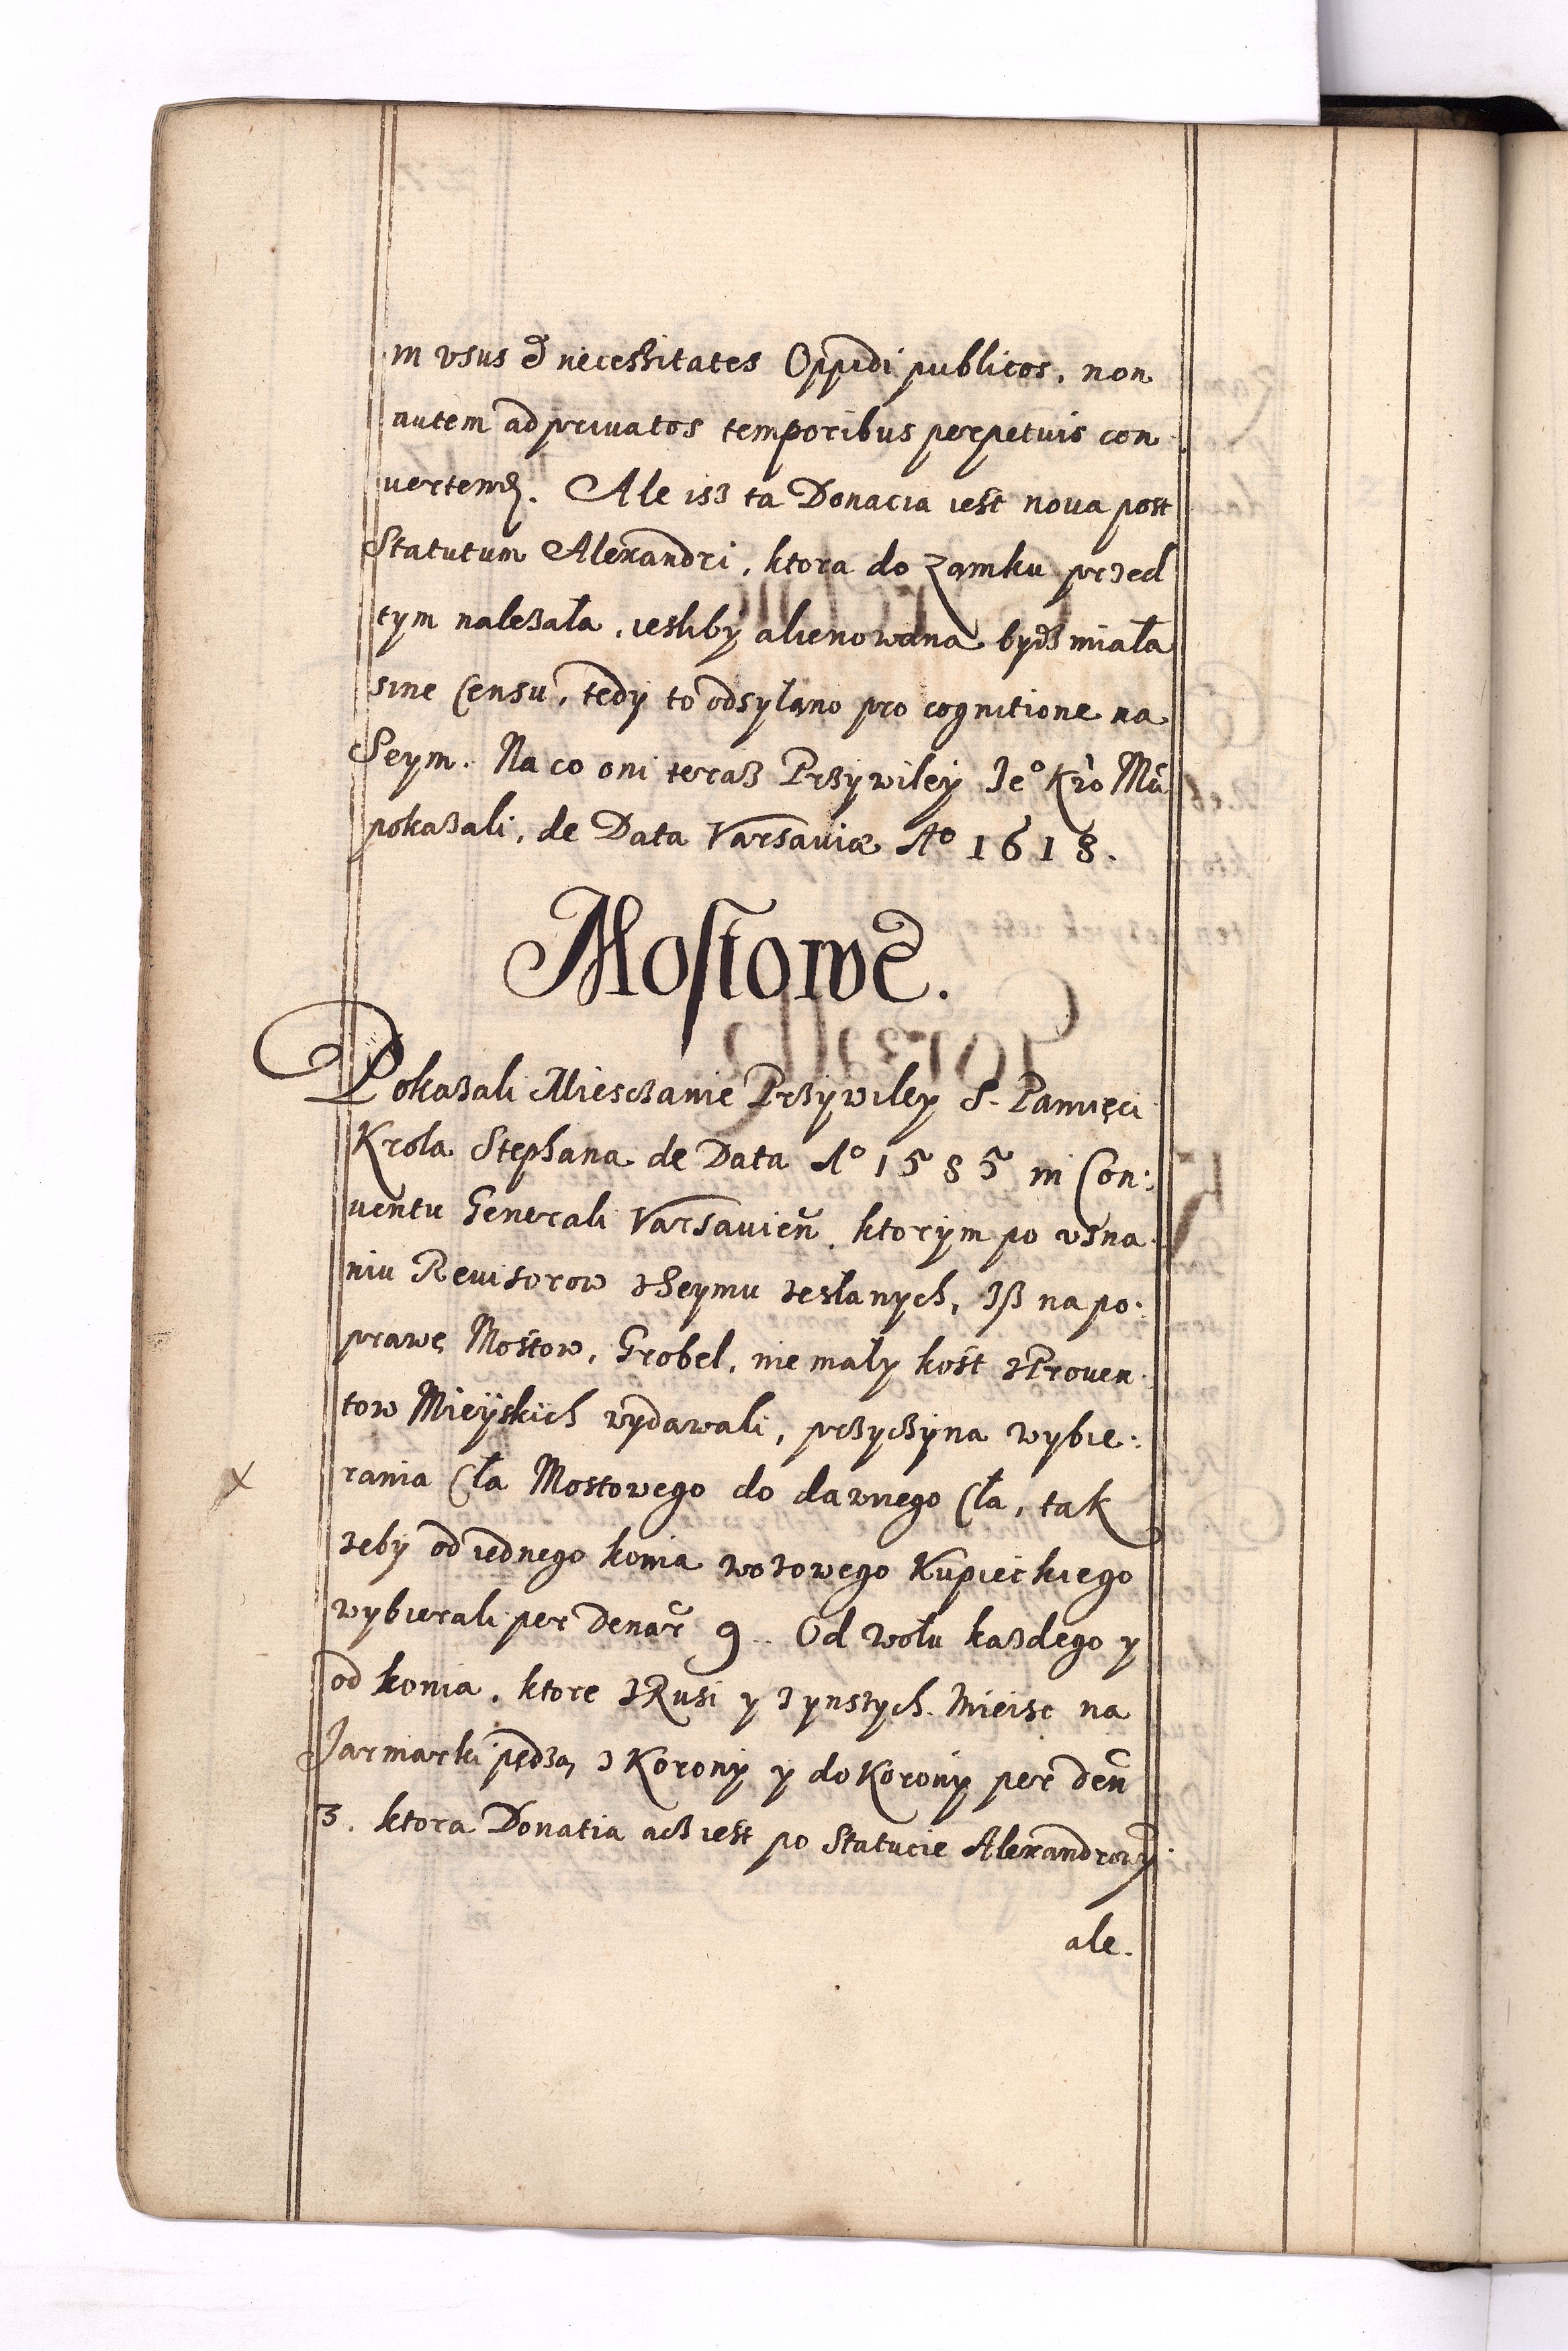 in vsus et necessitates Oppidi publicos, non
autem ad priuatos temporibus perpetuis con
uertend. Ale isz ta Donacia iest noua post
Statutum Alexandri, ktora do zamku przed
tym nalezała, iesliby alienowana bydz miała
sine Censu, tedy to odsyłano pro cognitione na
Seym. Na co oni teraz Przywiley Je° Kro Mci
pokazali, de Data Varsauiæ A° 1618.
Mostowe.
Pokazali Miesczanie Przywiley S. Pamięci
Krola Stephana de Data A° 1585 in Con:
uentu Generali Varsauieñ. ktorym po vzna
niu Reuisorow z Seymu zesłanych, Iß na po:
prawę Mostow, Grobel, nie mały kost z Prouen
tow Mieyskich wydawali, przyczyna wybie:
rania Cła Mostowego do dawnego Cła, tak
zeby od iednego konia wozowego Kupieckiego
wybierali per denar̃ 9. Od wołu kazdego y
od konia, ktore z Rusi y z ynszych Mieisc na
Jarmarki pędzą z Korony y do Korony per deñ
3. ktora Donatia acz iest po Statucie Alexandrowy
ale.